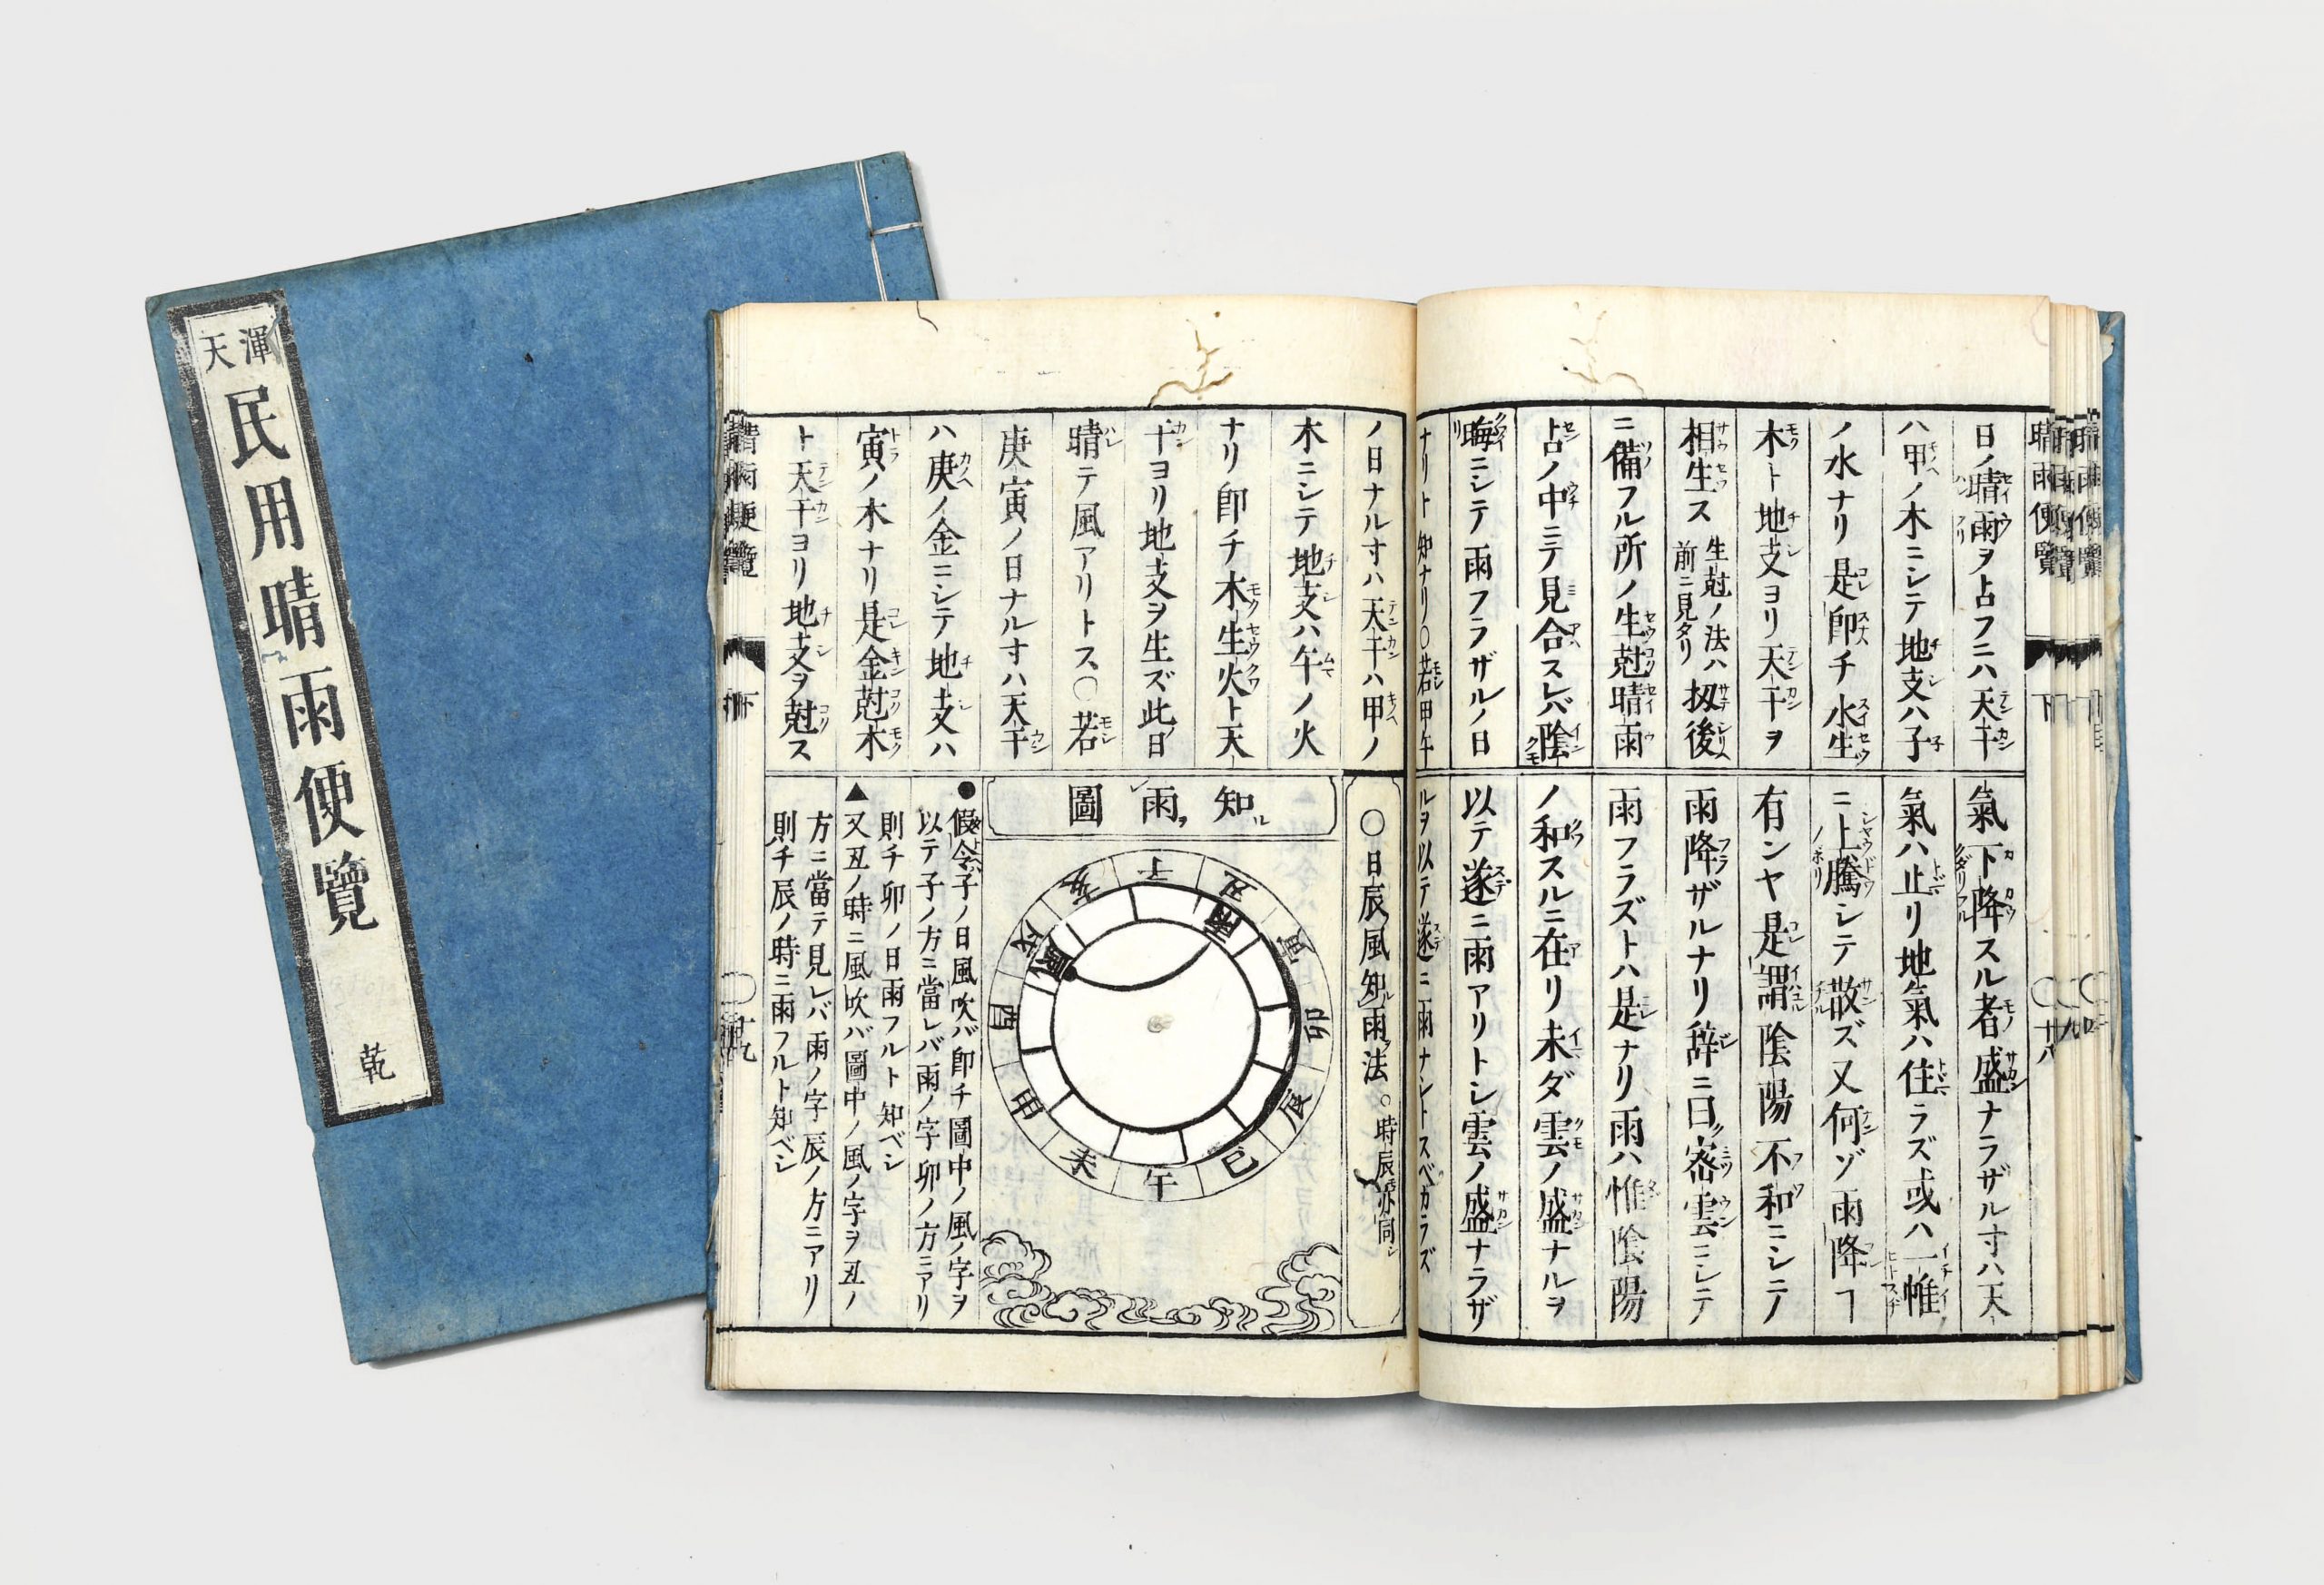 渾天
民用晴雨便覽
乾
晴雨便覽
下
十八
日ノ晴雨ヲ占フニハ天干
ハ甲ノ木ニシテ地支ハ子
ノ水ナリ是即チ水生
木ト地支ヨリ天干ヲ
相生ス生尅ノ法ハ前ニ見タリ扨後
ニ備フル所ノ生尅晴雨
占ノ中ニテ見合スレバ陰
晦ニシテ雨フラザルノ日
ナリト知ナリ○若甲午
氣下降スル者盛ナラザル寸ハ天
氣ハ止リ地氣ハ住ラズ或ハ一帷
ニ上騰シテ散ズ又何ゾ雨降ヿ
有ンヤ是謂陰陽不和ニシテ
雨降ザルナリ辞ニ曰密雲ニシテ
雨フラズトハ是ナリ雨ハ惟陰陽
ノ和スルニ在リ未ダ雲ノ盛ナルヲ
以テ遂ニ雨アリトシ雲ノ盛ナラザ
ルヲ以テ遂ニ雨ナシトスベカラズ
ノ日ナル寸ハ天干ハ甲ノ
木ニシテ地支ハ午ノ火
ナリ即チ木生火ト天
干ヨリ地支ヲ生ズ此日
晴テ風アリトス○若
庚寅ノ日ナル寸ハ天干
ハ庚ノ金ニシテ地支ハ
寅ノ木ナリ是金尅木
ト天干ヨリ地支ヲ尅ス
○日辰風知ル雨ヲ法。時辰亦同シ
知ル雨ヲ圖
子
丑
寅
卯
辰
巳
午
未
申
酉
戌
亥
雨
風
●假令子ノ日風吹バ即チ圖中ノ風ノ字ヲ
以テ子ノ方ニ當レバ雨ノ字卯ノ方ニアリ
則チ卯ノ日雨フルト知ベシ
▲又丑ノ時ニ風吹バ圖中ノ風ノ字ヲ丑ノ
方ニ當テ見レバ雨ノ字辰ノ方ニアリ
則チ辰ノ時ニ雨フルト知ベシ
晴雨便覽
下
十九